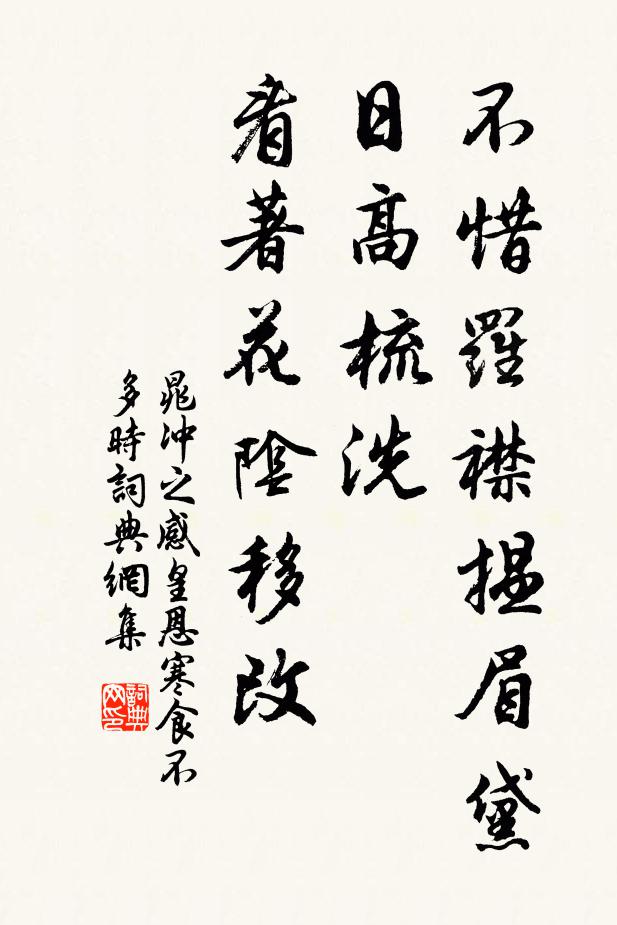 不惜羅襟揾眉黛
日高梳洗
看著花陰移改
晁沖之感皇恩寒食不
多時詞典網集
詞典
网印